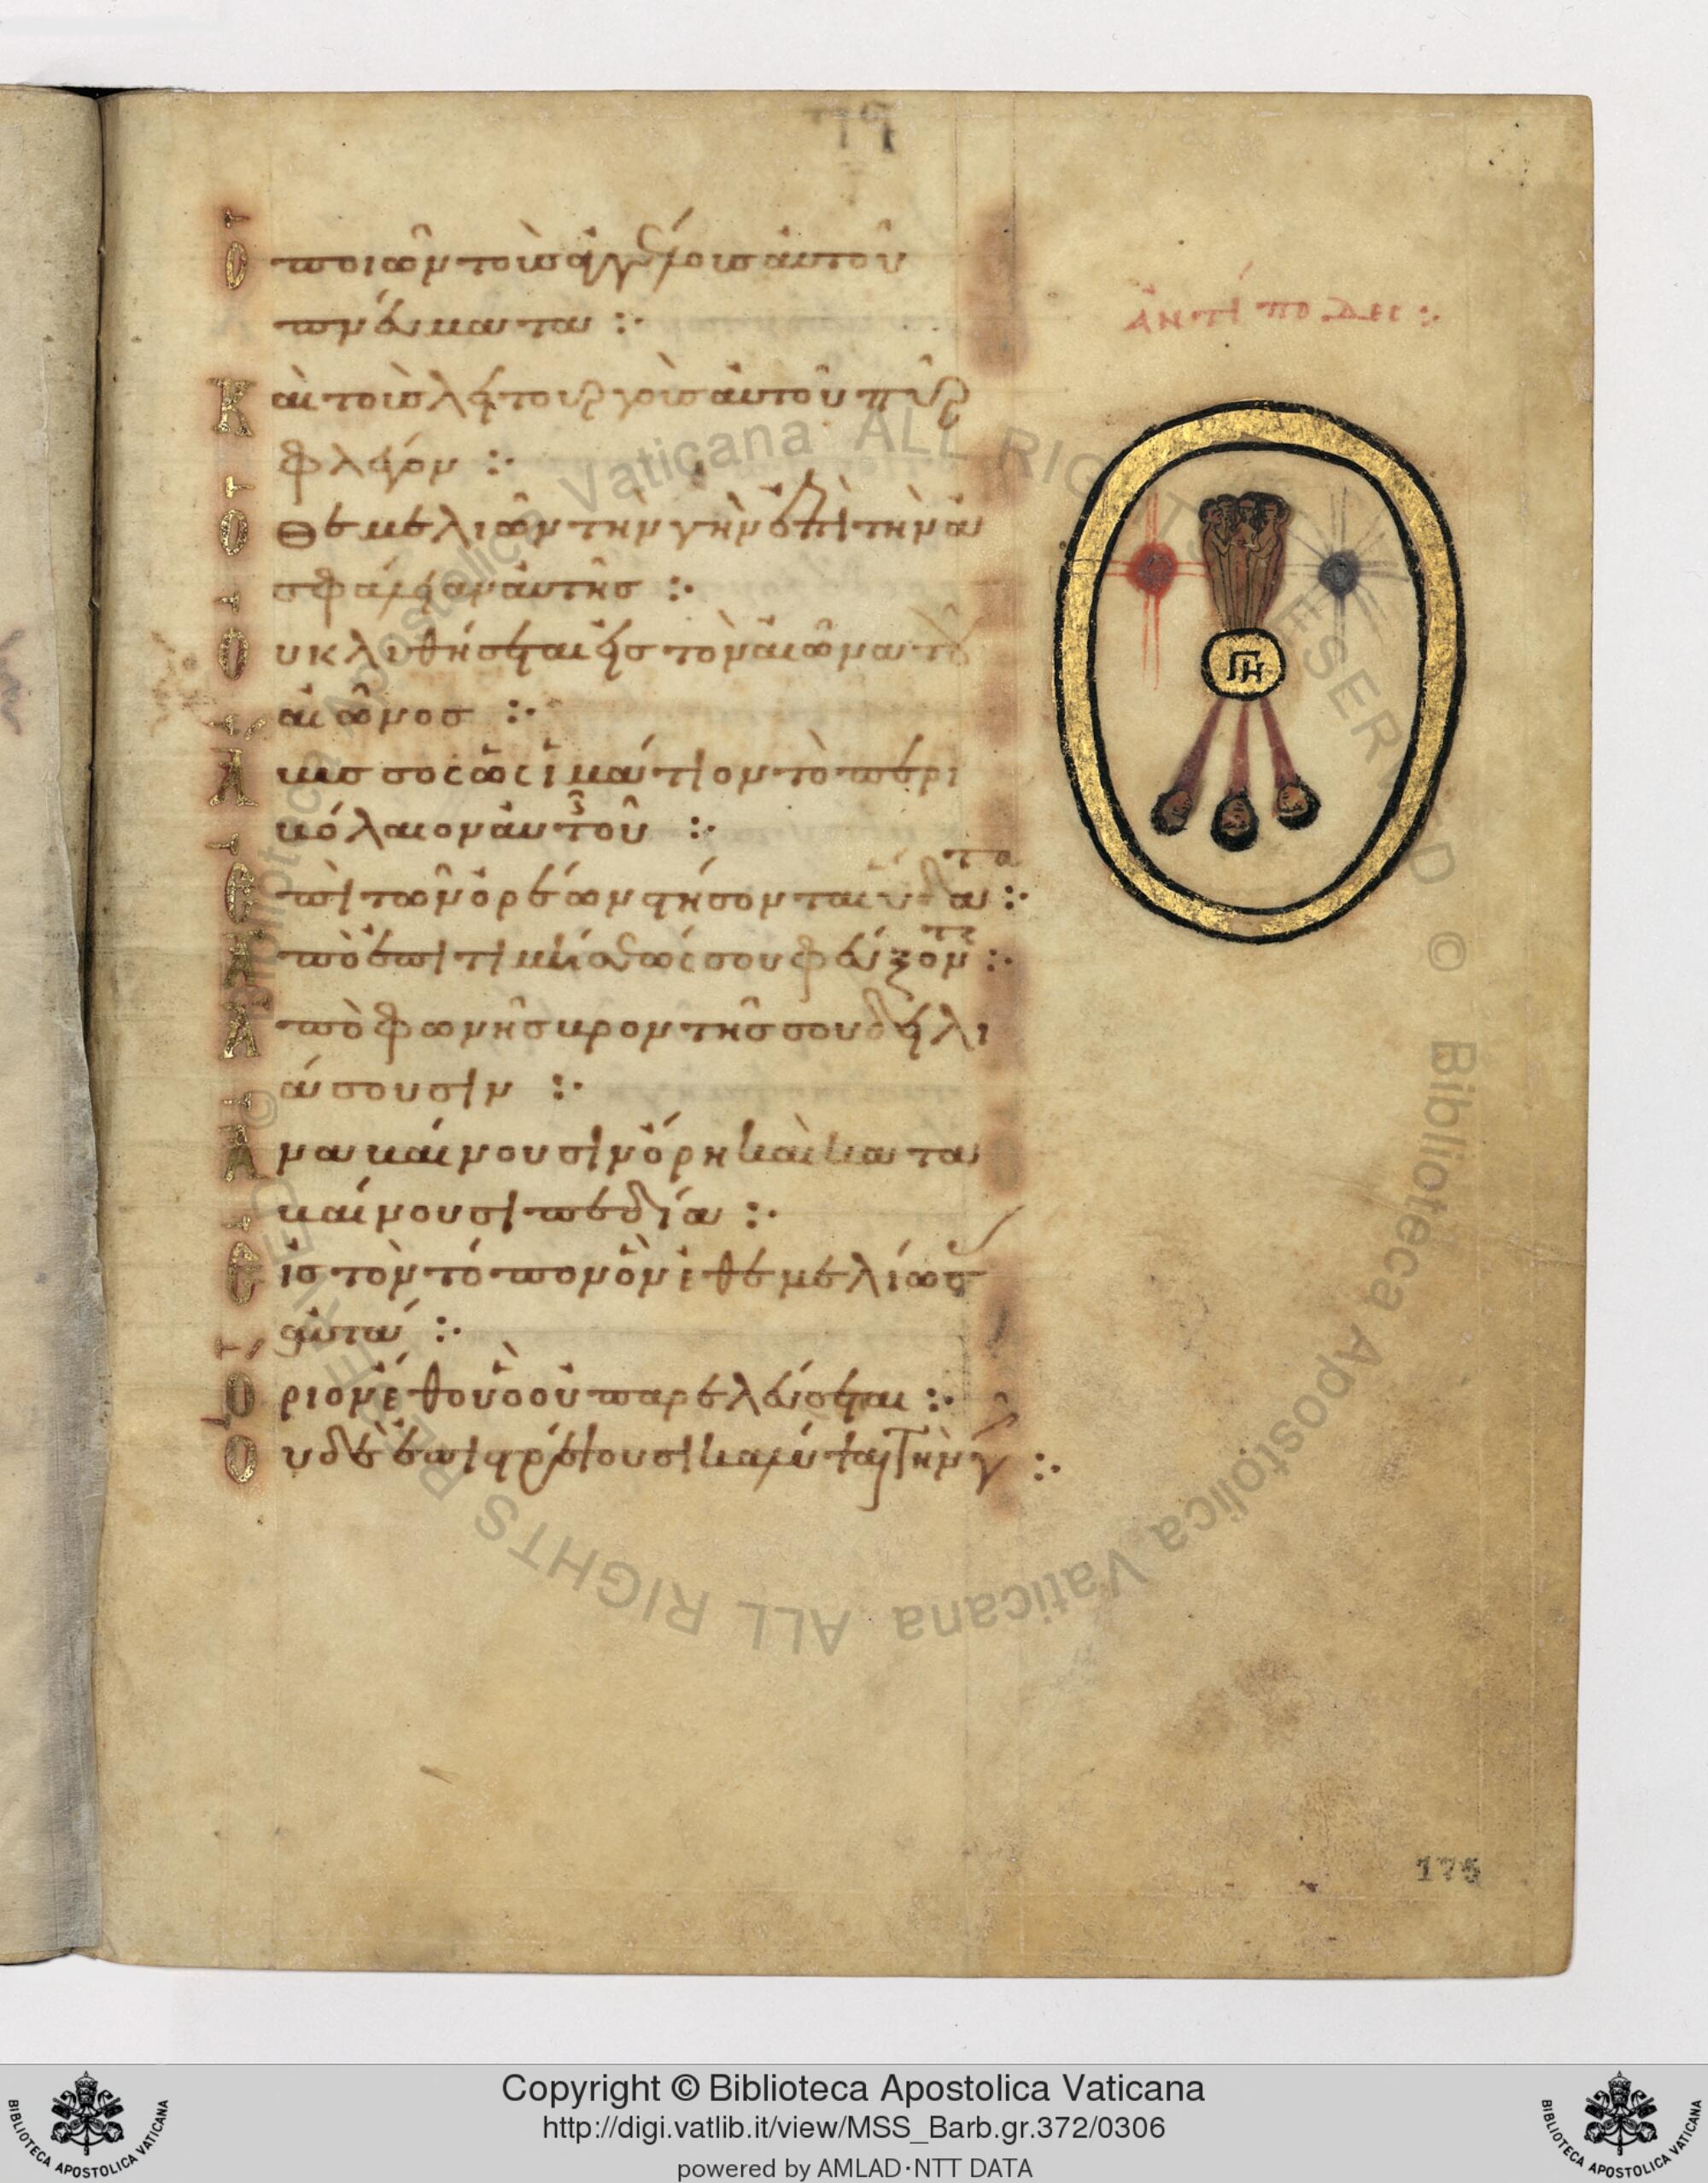 Ὁ ποιῶν τοὺς ἀγγέλους αὐτοῦ
πνεύματα :·
Καὶ τοὺς λειτουργοὺς αὐτοῦ πῦρ
φλέγον :·
Ὁ θεμελιῶν τὴν γῆν ἐπὶ τὴν ἀ
σφάλειαν αὐτῆς :·
Οὐ κλιθήσεται εἰς τὸν αἰῶνα τοῦ
αἰῶνος :·
Ἄβυσσος ὡς ἱμάτιον τὸ περι
βόλαιον αὐτοῦ :·
Ἐπὶ τῶν ὀρέων στήσονται ὕδατα :·
Ἀπὸ ἐπιτιμήσεώς σου φεύξονται :·
Ἀπὸ φωνῆς βροντῆς σου δειλι
άσουσιν :·
Ἀναβαίνουσιν ὄρη καὶ κατα
βαίνουσι πεδία :·
Εἰς τὸν τόπον ὃν ἐθεμελίωσας
αὐτά :·
Ὅριον ἔθου ὃ οὐ παρελεύσεται :·
Οὐδὲ ἐπιστρέψουσι καλύψαι τὴν γῆν :·
ἀντίποδες :·
ΓΗ
175
Copyright © Biblioteca Apostolica Vaticana
http://digi.vatlib.it/view/MSS_Barb.gr.372/0306
powered by AMLAD·NTT DATA
BIBLIOTECA APOSTOLICA VATICANA
BIBLIOTECA APOSTOLICA VATICANA
© Biblioteca Apostolica Vaticana ALL RIGHTS RESERVED © Biblioteca Apostolica Vaticana ALL RIGHTS RESERVED